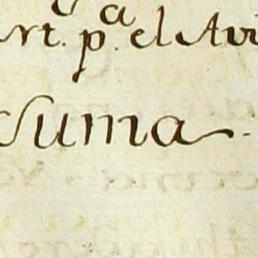 rt. p.ª el Avi
suma.